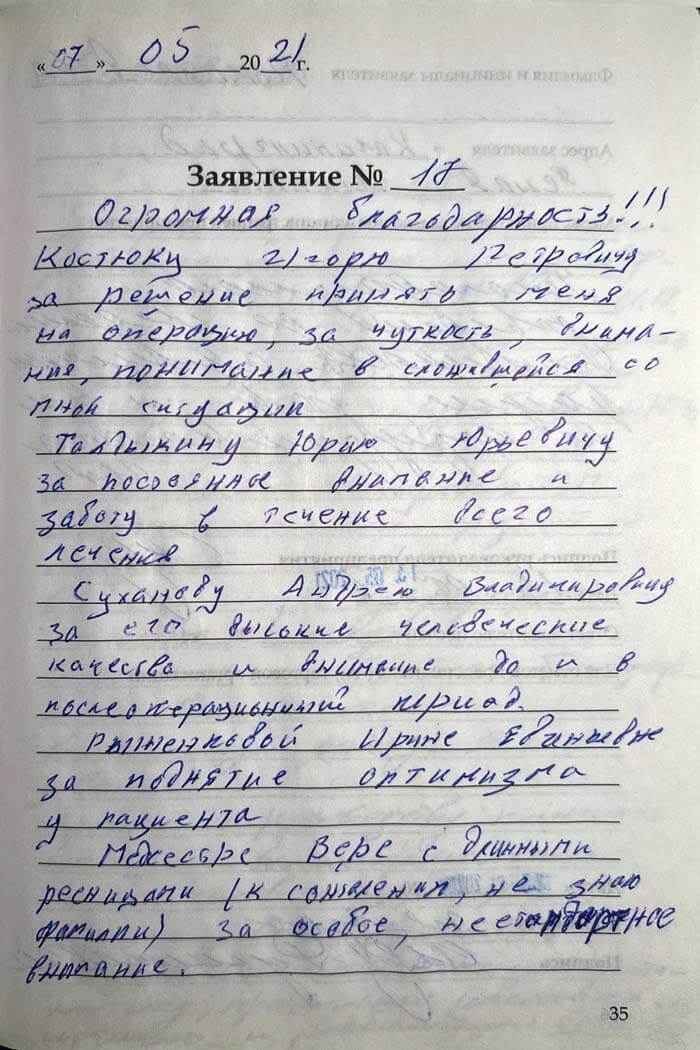 «07» 05 2021 г.
Заявление № 17
Огромная благодарность!!!
Костюку Игорю Петровичу
за решение принять меня
на операцию, за чуткость, внима-
ния, понимание в сложившейся со
мной ситуации
Талдыкину Юрию Юрьевичу
за постоянное внимание и
заботу в течение всего
лечения
Суханову Андрею Владимировичу
за его высокие человеческие
качества и внимание до и в
послеоперационный период.
Ирине Евгеньевне
за поднятие оптимизма
у пациента
Медсестре Вере с длинными
ресницами (к сожалению, не знаю
фамилии) за особое, нестандартное
внимание.
35